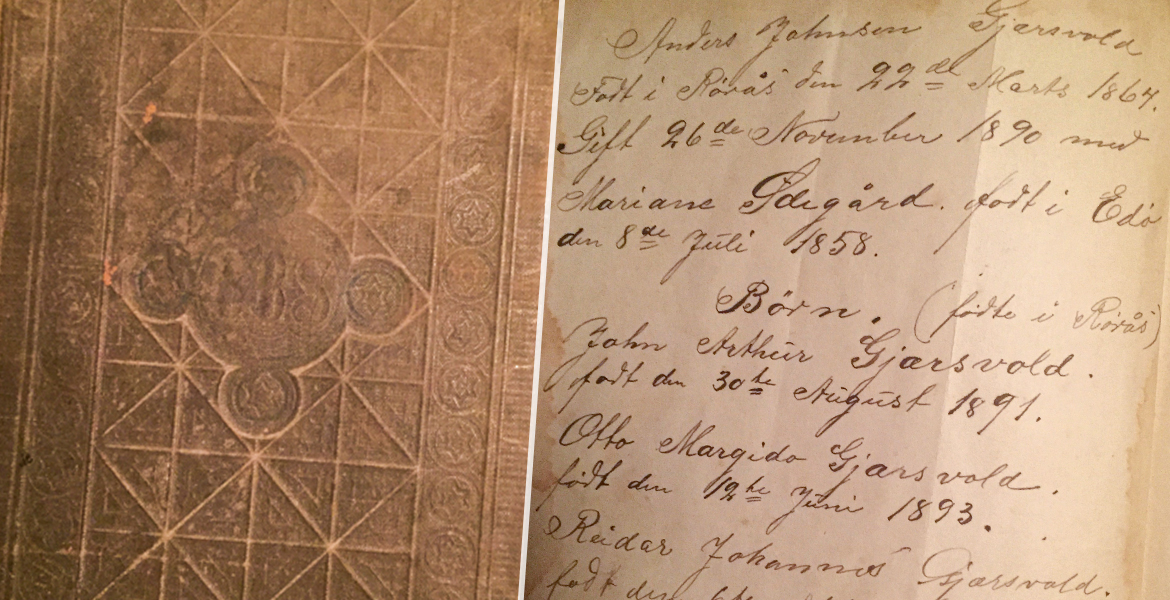 Anders Johnsen Gjærsvold
Født i Rørås den 22de Marts 1864.
Gift 26de November 1890 med
Mariane Ødegård. født i Edø
den 8de Juli 1858.
Börn. (födte i Rørås)
John Arthur Gjærsvold.
født den 30te August 1891.
Otto Margido Gjærsvold.
født den 12te Juni 1893.
Reidar Johannes Gjærsvold.
født den